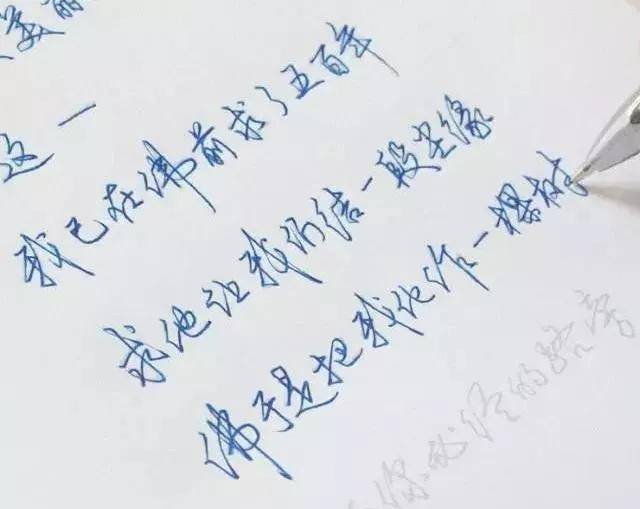 美丽
这一
我已在佛前求了五百年
求他让我们结一段尘缘
佛于是把我化作一棵树
你必经的路旁